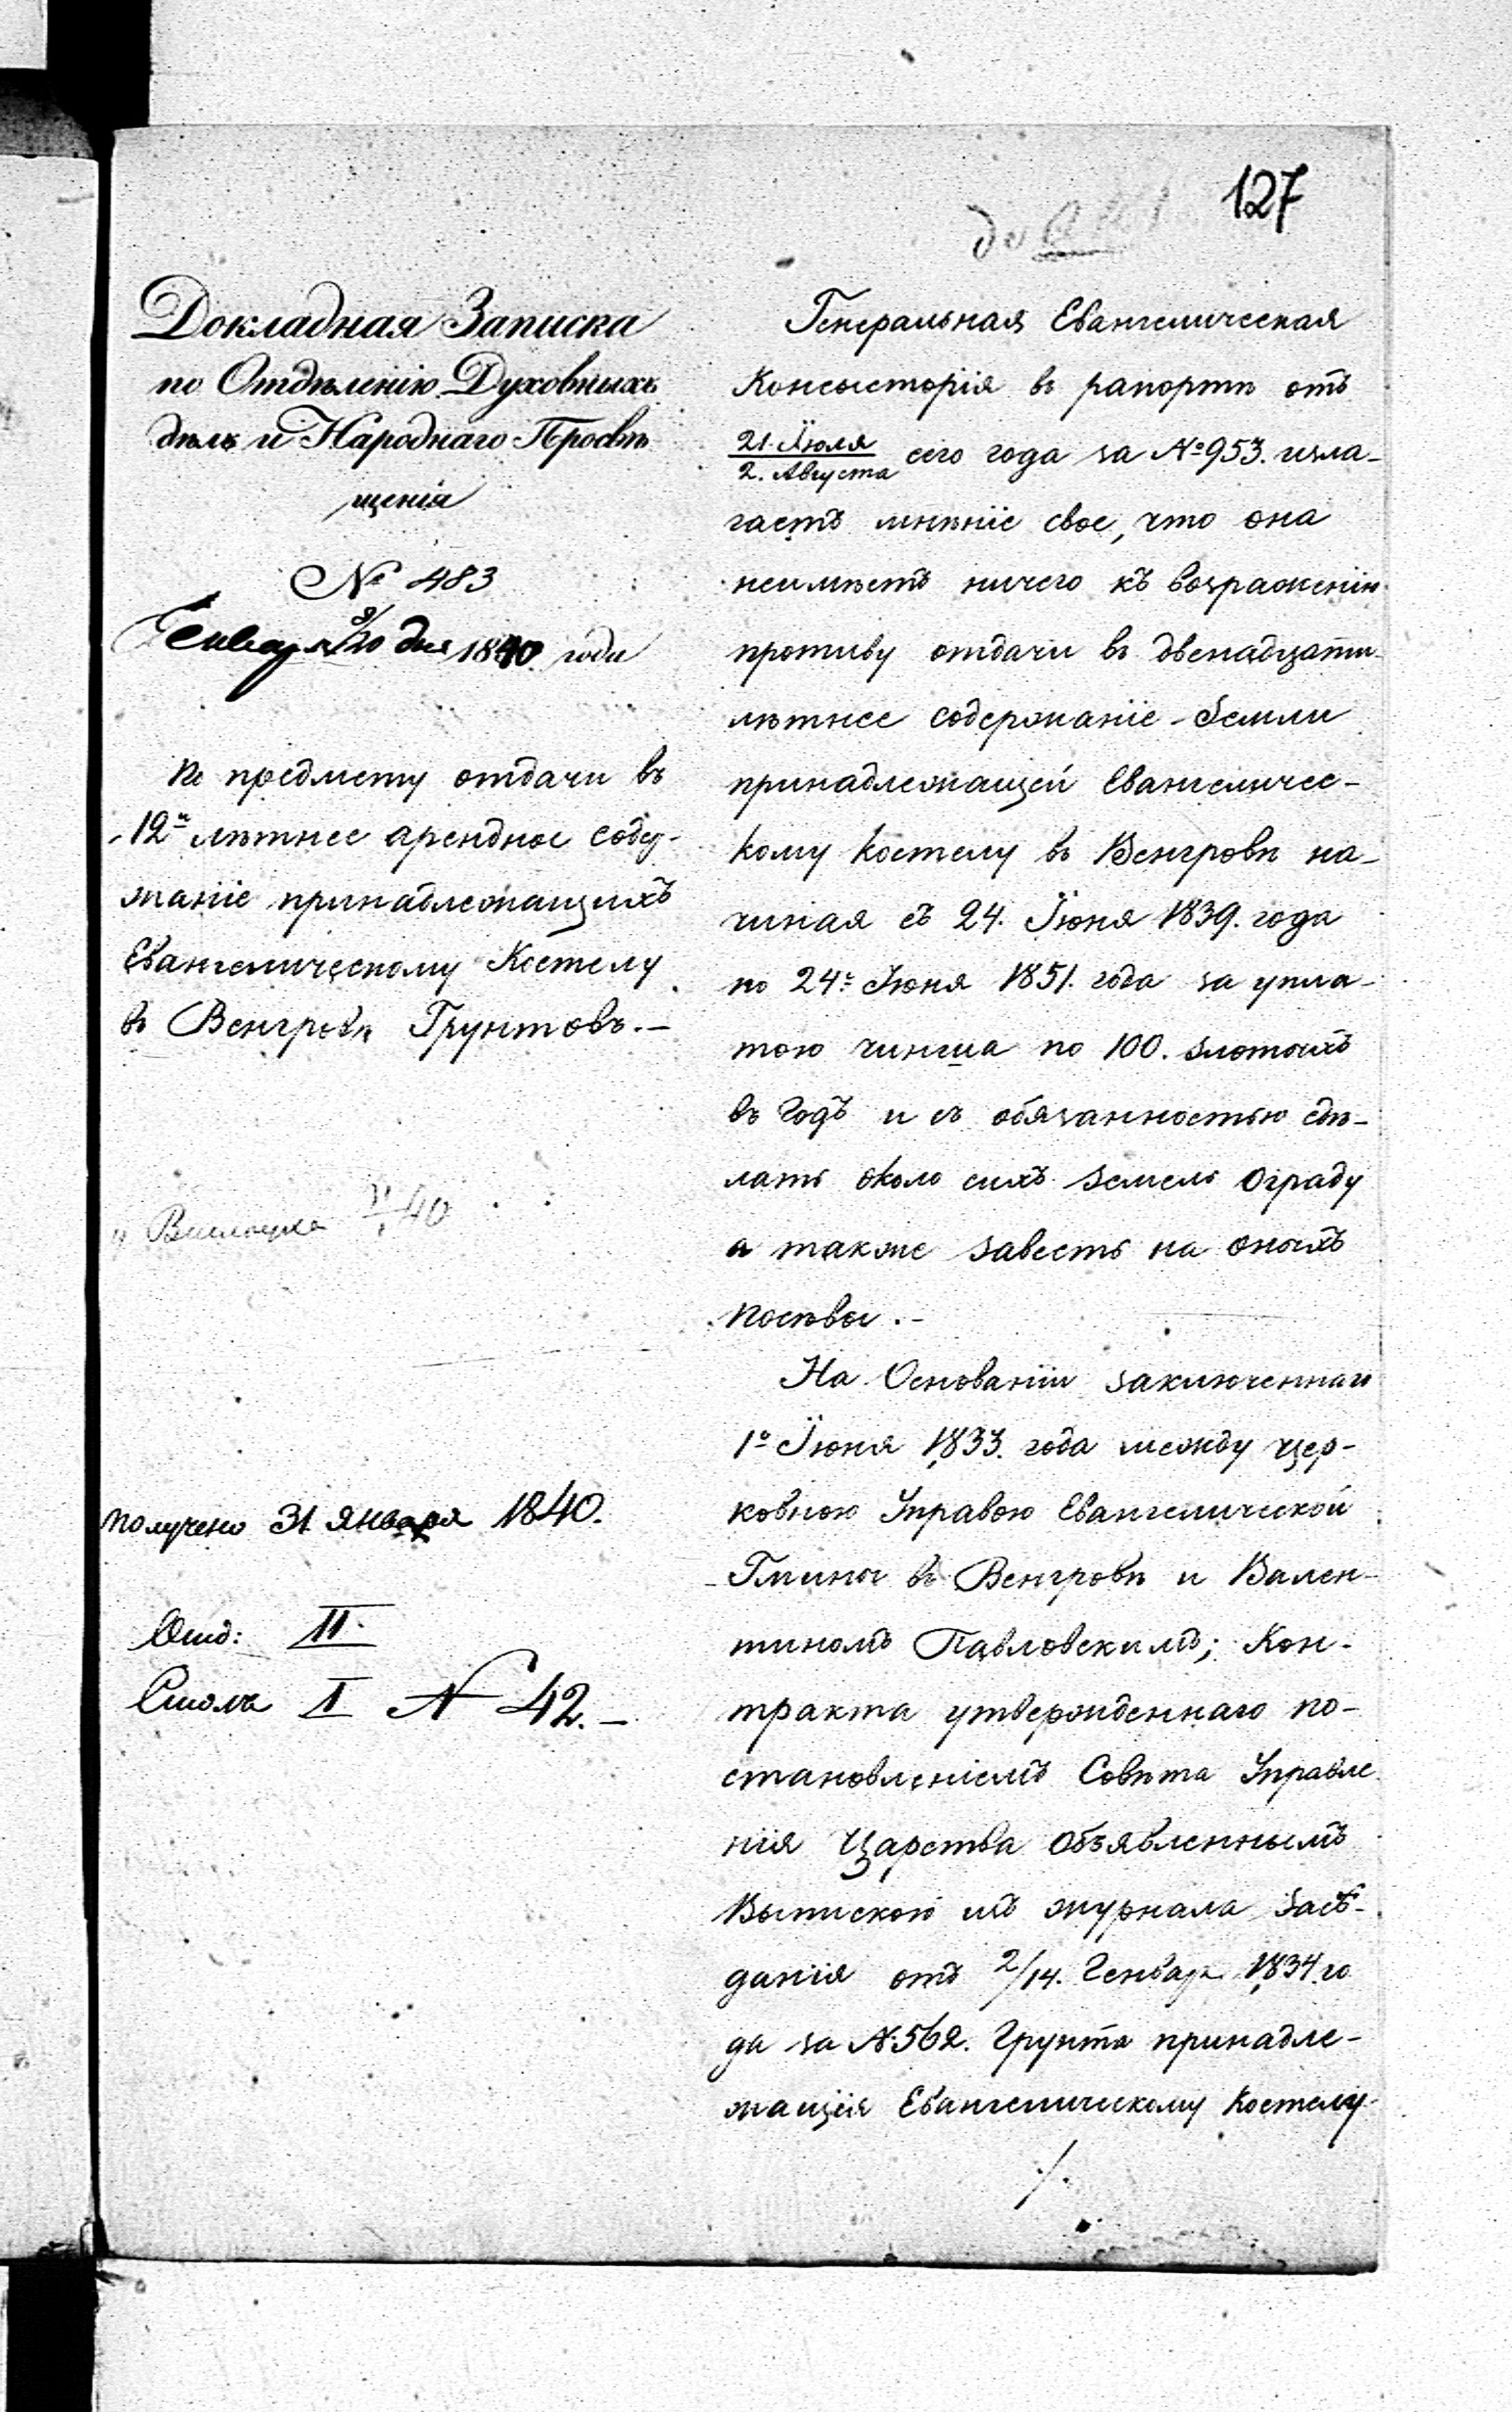 127
до
Докладная Записка
по Отдѣленію Духовныхъ
дѣлъ и Народнаго Просвѣ
щенія
№ 483
Генваря 8/20 дня 1840. года
По предмету отдачи въ
12и лѣтнее арендное содер-
жаніе принадлежащихъ
Евангелическому Костелу
въ Венгровѣ Грунтовъ.—
40
получено 31 Января 1840.
Отд: II.
Столъ I N 42.—
Генеральная Евангелическая
Консысторія въ рапортѣ отъ
21. Іюля / 2. Августа сего года за № 953. изла-
гаетъ мнѣніе свое, что она
неимѣетъ ничего къ возраженію
противу отдачи въ двенадцати
лѣтнее содержаніе Земли
принадлежащей Евангеличес-
кому Костелу въ Венгровѣ на-
чиная съ 24. Іюня 1839. года
по 24е Іюня 1851. года за упла-
тою чинша по 100. злотыхъ
въ годъ и съ обязанностью сдѣ-
лать около сихъ земель ограду
а также завесть на оныхъ
посѣвы.—
На Основаніи заключеннаго
1о Іюня 1833. года между цер-
ковною Управою Евангелической
Гмины въ Венгровѣ и Вален-
тиномъ Павловскимъ; Кон-
тракта утвержденнаго по-
становленіемъ Совѣта Управле
нія Царства объявленнымъ
Выпискою изъ журнала засѣ-
данія отъ 2/14. Генваря 1834. го
да за № 562. Грунта принадле-
жащія Евангелическому Костелу
./.